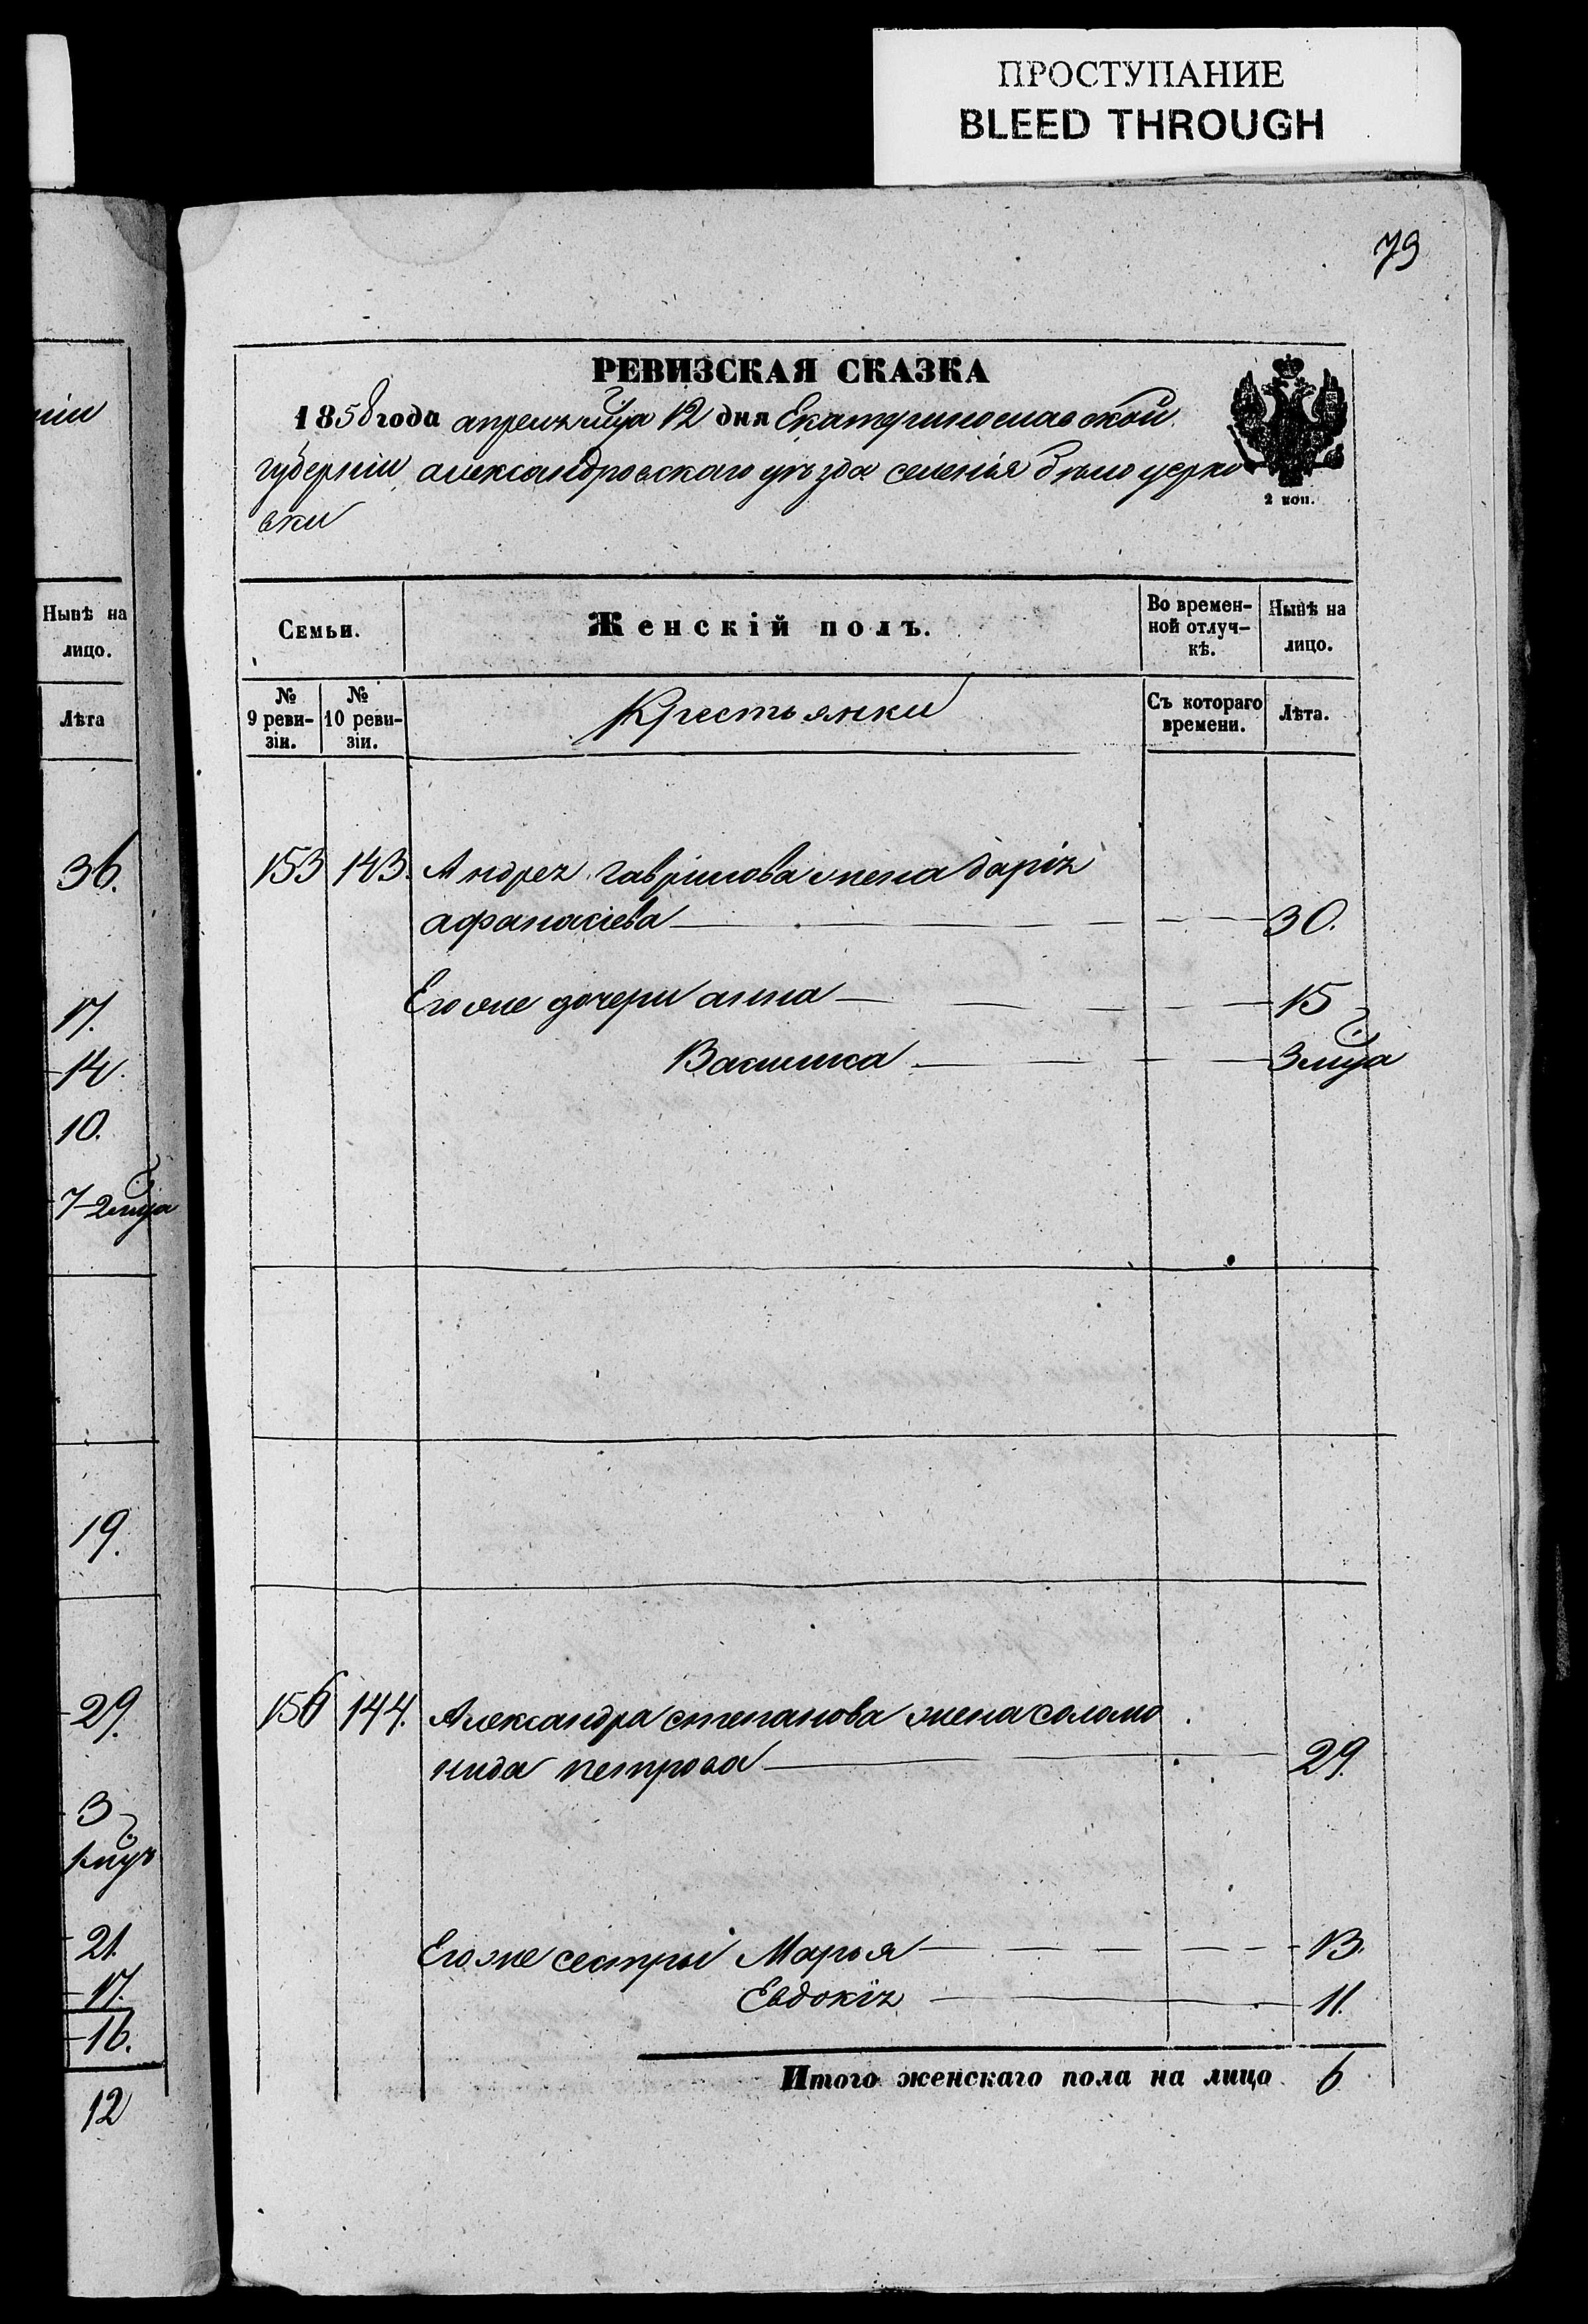 ПРОСТУПАНИЕ
BLEED THROUGH
79
РЕВИЗСКАЯ СКАЗКА
1858 года апреля мца 12 дня Екатеринослаской
губерніи александровскаго уѣзда селенія бѣлоцерко
вки
2 коп.
Семьи.
Женскій полъ.
Во времен-
ной отлуч-
кѣ.
Нынѣ на
лицо.
№
9 реви-
зіи.
№
10 реви-
зіи.
Крестьянки
Съ котораго
времени.
Лѣта.
153 143. Андрея гаврилова жена дарія
афанасіева 30.
Его же дочери анна 15
Василиса 3 мца
156 144. Александра степанова жена соломо
нида петрова 29.
Его же сестры Марья 13.
Евдокія 11.
Итого женскаго пола на лицо 6
Нынѣ на
лицо.
Лѣта
36.
17.
14.
10.
7-2 мца
19.
29.
3
1 мця
21.
17.
16.
12